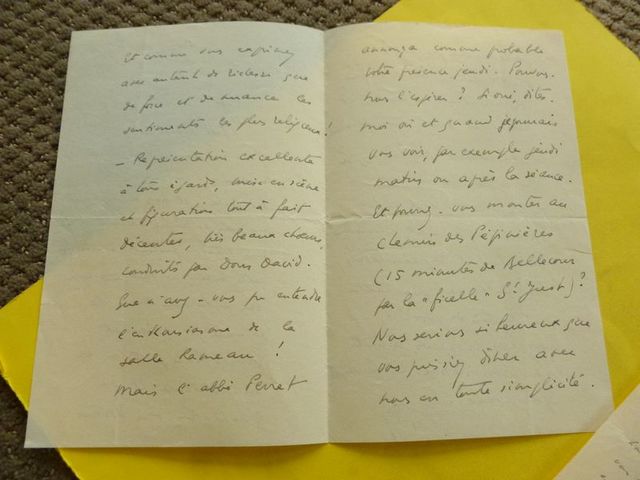 Et comme vous exprimez
avec autant de richesse que
de force et de nuance les
sentiments les plus religieux !
– Représentation excellente
à tous égards, mise en scène
et figuration tout à fait
décentes, très beaux chœurs,
conduits par Dom David.
Que n'avez-vous pu entendre
l'enthousiasme de la
salle Rameau !
Mais l'abbé Perret
annonça comme probable
votre présence jeudi. Pouvons-
nous l'espérer ? Si oui, dites-
moi où et quand je pourrais
vous voir, par exemple jeudi
matin ou après la séance.
Et pourrez-vous monter au
chemin des Pépinières
(15 minutes de Bellecour
par la "ficelle" St Just) ?
Nous serions si heureux que
vous puissiez dîner avec
nous en toute simplicité.